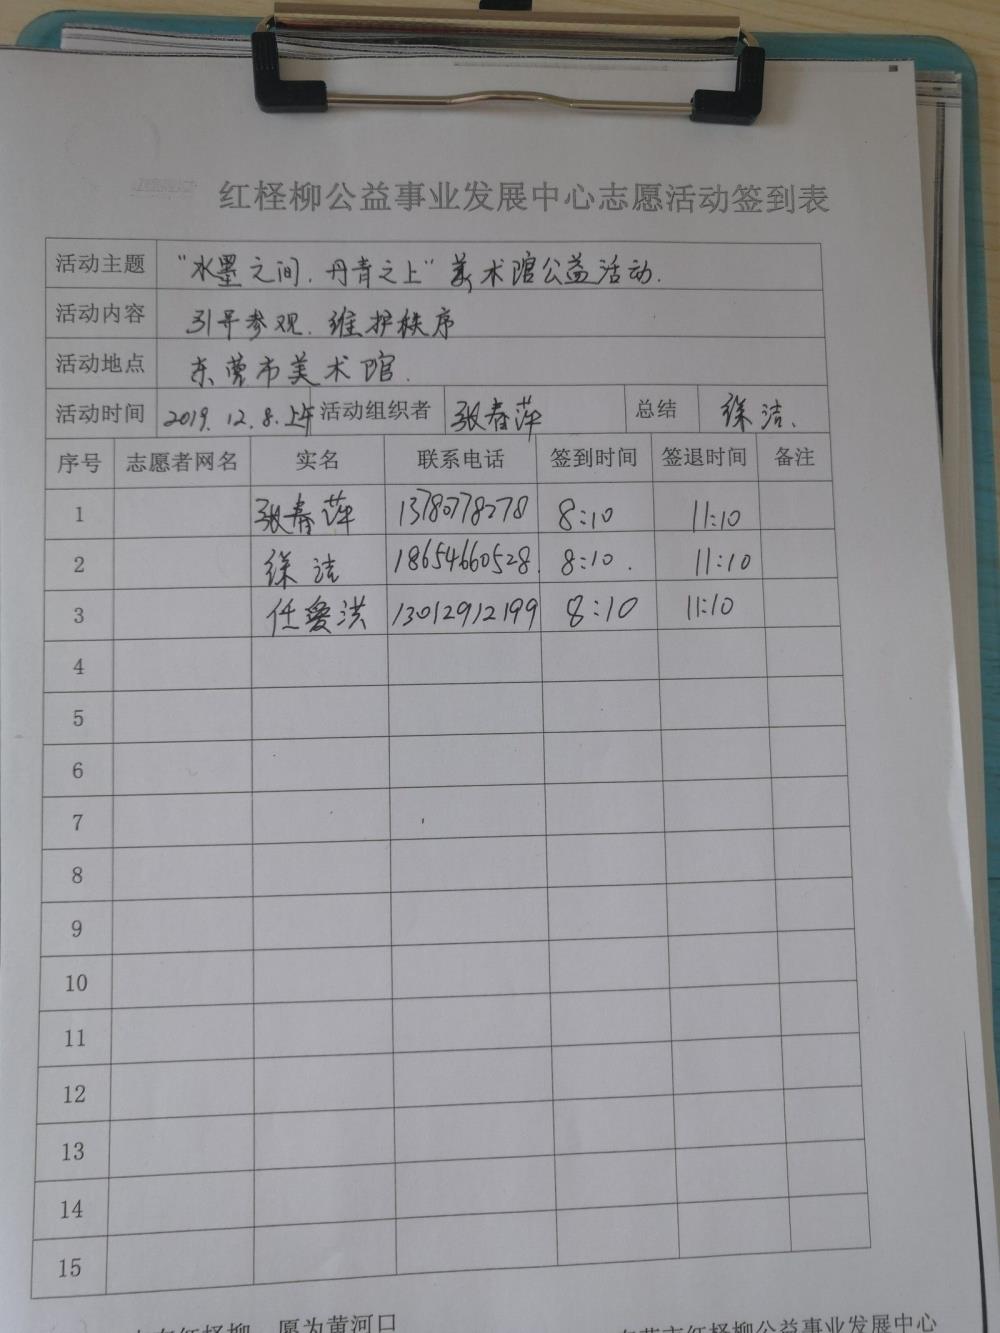 红柽柳公益事业发展中心志愿活动签到表
活动主题 "水墨之间.丹青之上"美术馆公益活动.
活动内容 引导参观.维护秩序
活动地点 东营市美术馆.
活动时间 2019.12.8.上午 活动组织者 张春萍 总结 徐洁.
序号 志愿者网名 实名 联系电话 签到时间 签退时间 备注
1 张春萍 13780778278 8:10 11:10
2 徐洁 18654660528. 8:10. 11:10
3 任爱洪 13012912199 8:10 11:10
4
5
6
7
8
9
10
11
12
13
14
15
红柽柳 愿为黄河口 东营市红柽柳公益事业发展中心